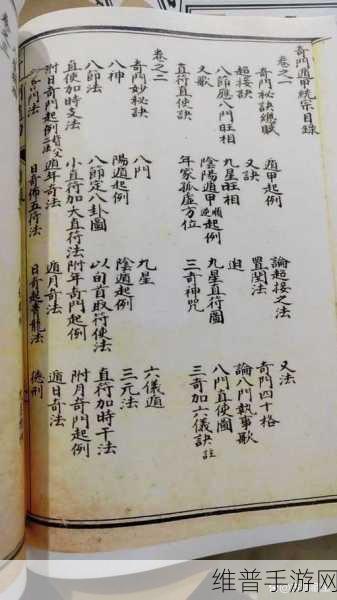 奇門遁甲統宗目錄
卷之一
奇門秘訣總賦 遁甲起例 論超接之法 又法
超接訣 又訣 置閏法 奇門四十格
八節應八門旺相 九星旺相 迫 論八門執事歌
又歌 陰陽遁甲逆順起例 九星直符圖 八門直使圖
直符直使訣 年家孤虛方位 三奇神咒 三奇加六儀訣註
卷之二
奇門妙秘訣 八門 九星 六儀遁
八神 陽遁起例 陰遁起例 三元法
八節法 八節定八卦圖 以旬首取符使法 直符加時干法
直使加時支法 小直符加大直符法 附年奇門起例 附月奇門起例
附日奇門起例 遁年奇法 遁月奇法 遁日奇法
門法 日奇佈五符法 日奇起黃龍法 德刑
维普手游网